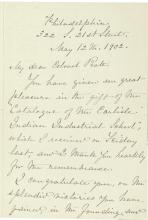 Philadelphia
322 S. 21st Street.
May 12th. 1902.
My dear Colonel Pratt
You have given me great
pleasure in the gift of the
Catalogue of the Carlisle
Indian Industrial School,
which I received on Friday
last, and I thank you heartily
for the remembrance.
I congratulate you, on the
splendid victories you have
gained, in the founding and